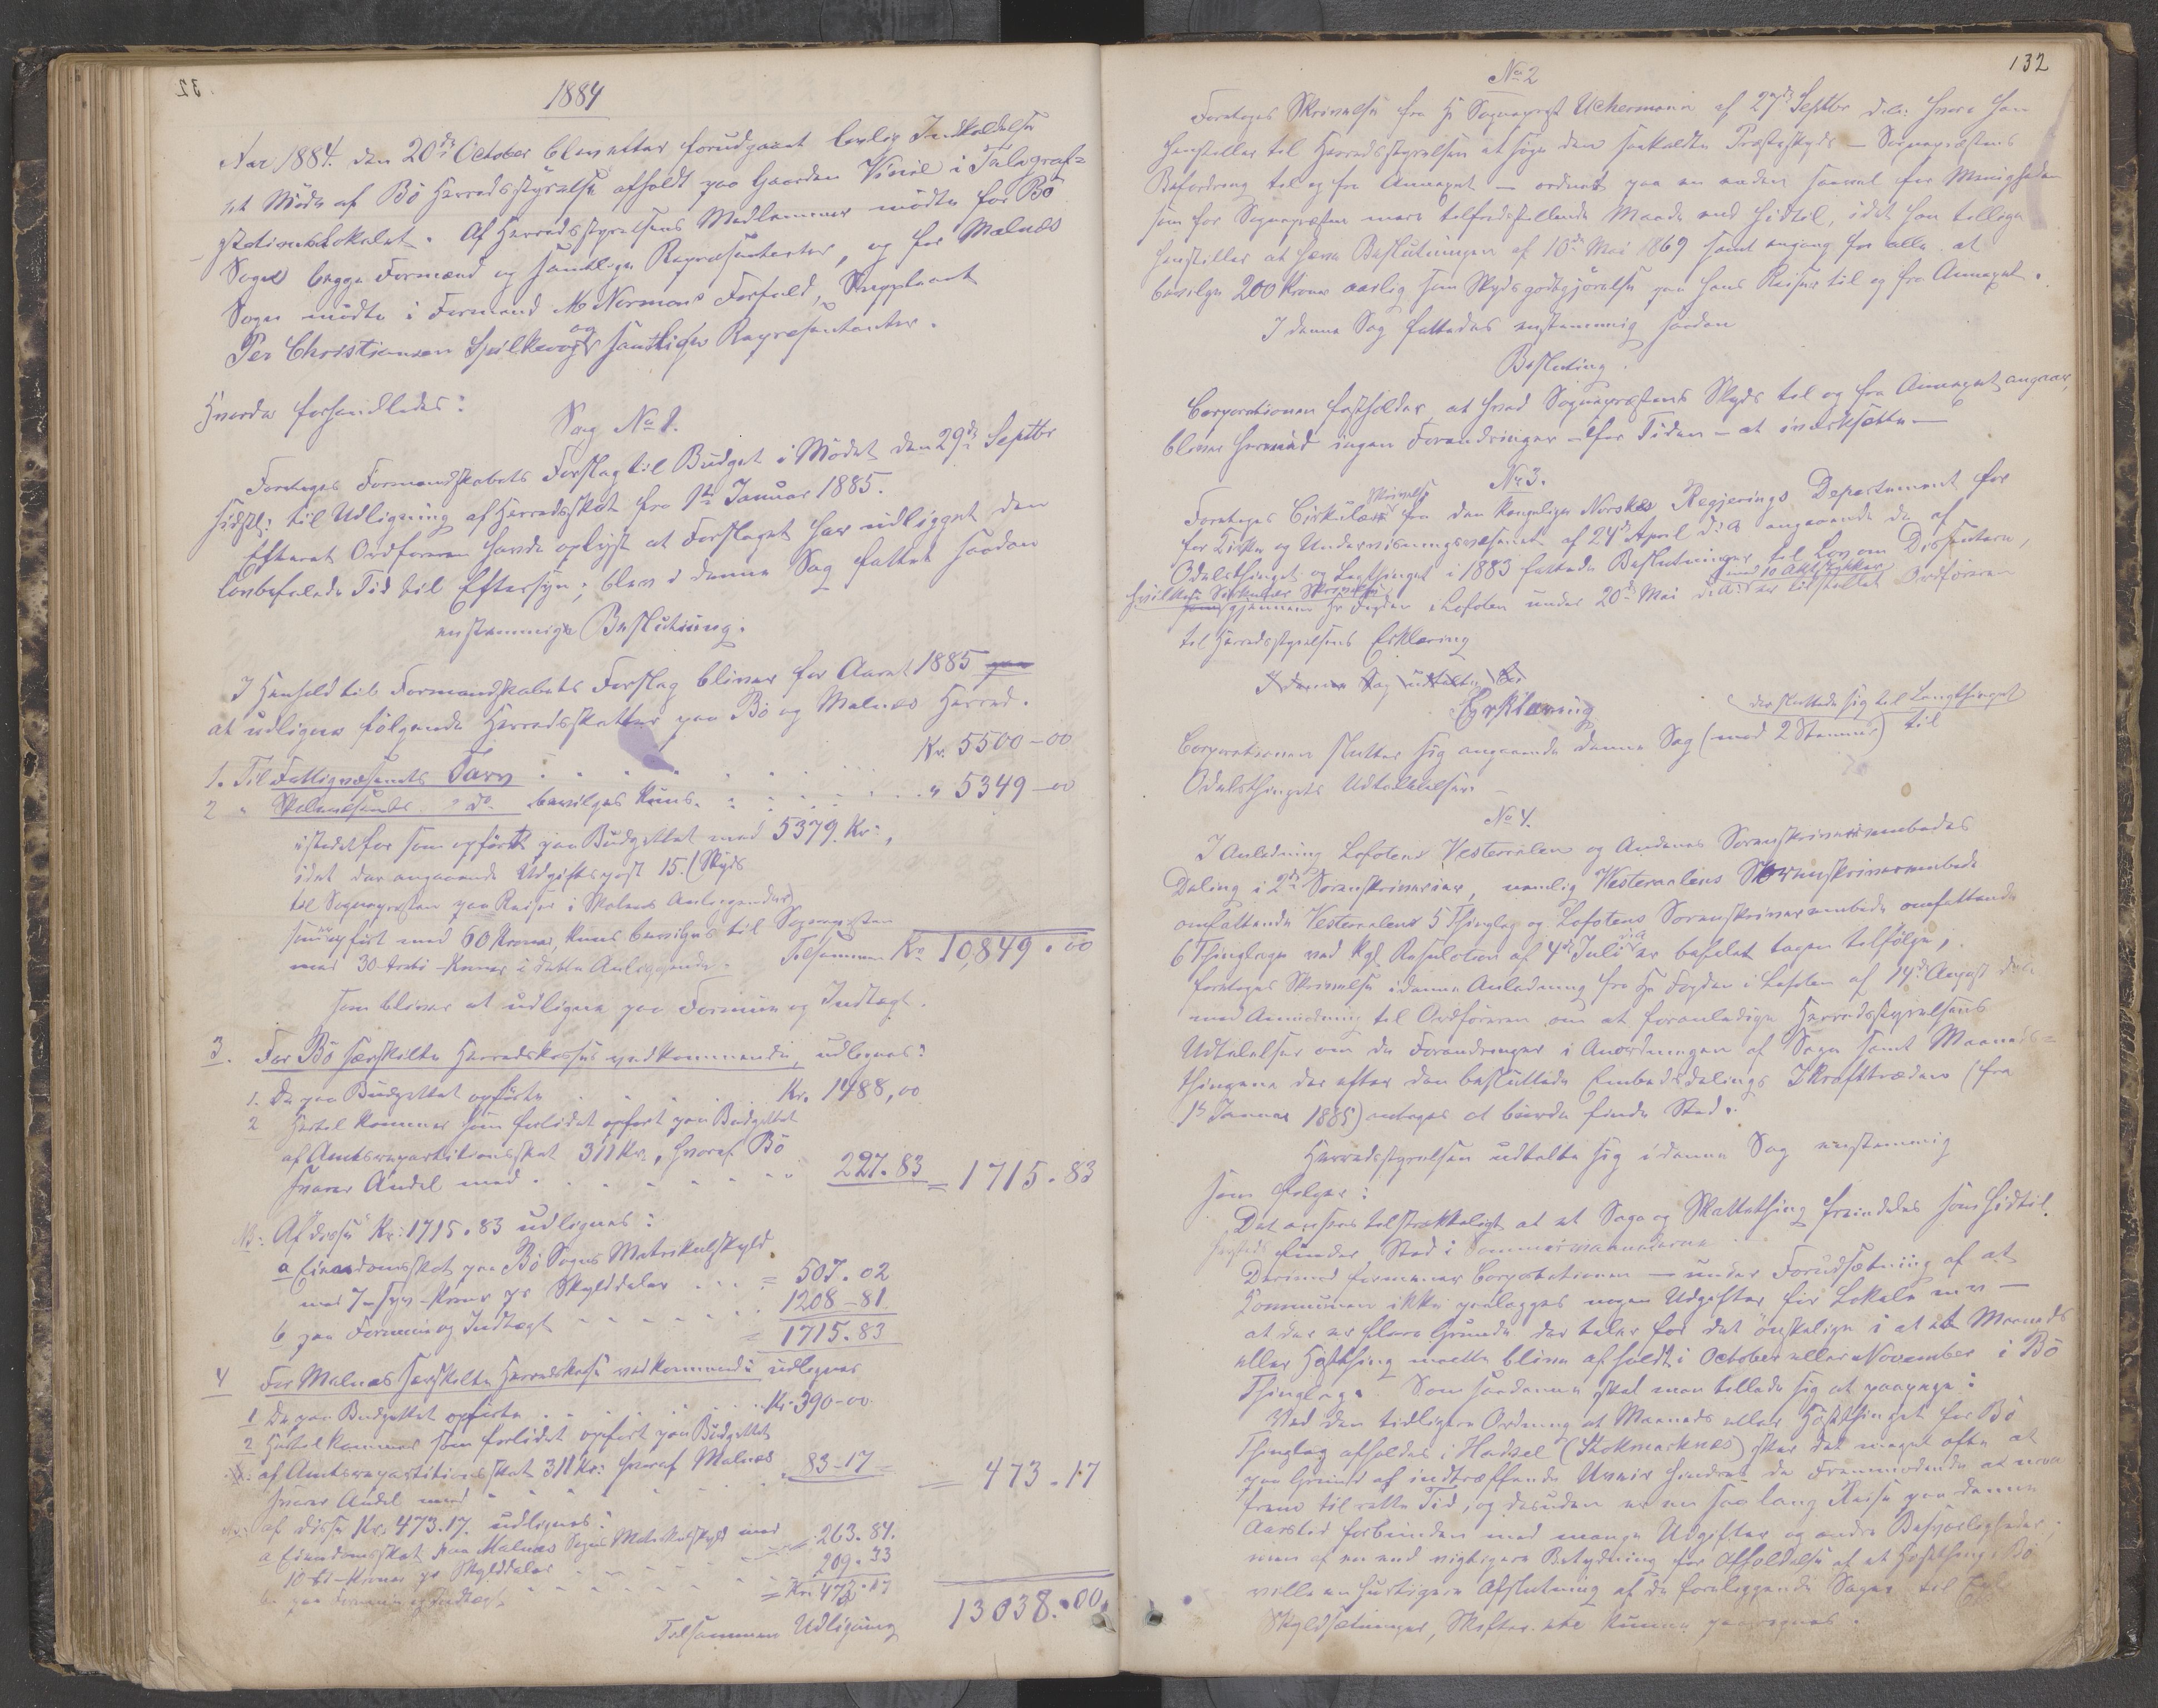 1884
Aar 1884 den 20de October blev efter forudgaaet lovlig Indkaldelse
et Möde af Bö Herredsstyrelse afholdt paa Gaarden Vinie i Telegraf-
stationslokalet. Af Herredsstyrelsens Medlemmer mödte for Bö
Sogn begge Formænd og samtlige Repræsentanter, og for Malnes
Sogn mödte i Formand M Normans Forfald, Suppleant
Per Christiansen Spilkevog og samtlige Repræsentanter.
Hvorda forhandledes:
Sag No 1.
Foretoges Formandskabets Forslag til Budget i Mödet den 29de Septbr
sidstl: til Udligning af Herredsskat fra 1ste Januar 1885.
Efterat Ordföreren havde oplyst at Forslaget har udligget den
lovbefalede Tid til Eftersyn; blev i denne Sag fattet saadan
enstemmige Beslutning:
I Henhold til Formandskabets Forslag bliver for Aaret 1885 paa
at udligne fölgende Herredsskatter paa Bö og Malnes Herred.
1. Til Fattigvæsenets Tarv . . . Kr. 5500-00
2 " Skolevæsenets " do bevilges kuns . . . " 5349-00
istedetfor som opfört paa Budgettet med 5379 Kr.,
idet der angaaende Udgiftspost 15. (Skyds
til Sognepresten paa Reiser i Skolens Anliggender)
som er opfört med 60 Kroner, kuns bevilges til Sognepresten
med 30-treti-Kroner i dette Anliggende. Tilsammen Kr 10,849.00
som bliver at udligne paa Formue og Indtægt.
3. For Bö særskilte Herredskasse vedkommende, udlignes:
1. De paa Budgettet opförte . . . Kr. 1488,00
2 Hertil kommer som forlidet opfört paa Budgettet
af Amtsrepartitionsskat 311 Kr., hvoraf Bö
svarer Andel med . . . 227.83 = 1715.83
NB: Af disse Kr: 1715.83 udlignes:
a Eiendomsskat paa Bö Sogns Matrikulskyld
med 7-syv-Kroner pr Skylddaler . . = 507.02
b paa Formue og Indtægt . . . 1208-81
= 1715.83
4 For Malnes særskilte Herredskasse vedkommende udlignes
1 De paa Budgettet opförte . . . Kr. 390-00.
2 Hertil kommer som forlidet opfört paa Budgettet
af Amtsrepartitionsskat 311 Kr: hvoraf Malnes
svarer Andel med . . . 83-17 = 473-17
af disse Kr. 473.17. udlignes:
a Eiendomsskat paa Malnes Sogns Matrikulskyld med
10-ti-Kroner pr Skylddaler . . . 263.84.
b. paa Formue og Indtægt . . . 209.33
= Kr. 473.17
Tilsammen Udligning 13038.00.
132
No 2
Foretoges Skrivelse fra Hr Sogneprest Uchermann af 27de Septbr d.a: hvori han
henstiller til Herredsstyrelsen at söge den saakaldte Præsteskyds - Sognepræstens
Befordring til og fra Annexet - ordnet paa en anden saavel for Menigheden
som for Sognepræsten mere tilfredsstillende Maade end hidtil, idet han tillige
henstiller at hæve Beslutningen af 10de Mai 1869 samt engang for alle at
bevilge 200 Kroner aarlig som Skydsgodtgjörelse paa hans Reiser til og fra Annexet.
I denne Sag fattedes enstemmig saadan
Beslutning.
Corporationen fastholder, at hvad Sognepræstens Skyds til og fra Annexet angaar,
bliver hermed ingen Forandringer - for Tiden - at iværksætte -
No 3.
Foretoges Cirkulær Skrivelse fra den Kongelige Norske Regjerings Departement for
for Kirke og Undervisningsvæsenet af 24de April d.A angaaende de af
Odelsthinget og Lagthinget i 1883 fattede Beslutninger til Lov om Dissentere,
hvilken Cirkulær Skrivelse med 10 Aktstykker
gjennem Hr Fogden i Lofoten under 20de Mai d.A: er tilstillet Ordföreren
til Herredsstyrelsens Erklæring
I denne Sag udtalte
Erklæring
Corporationen slutter sig angaaende denne Sag (med 2 Stemmer der sluttede sig til Lagthinget) til
Odelsthingets Udtalelser.
No 4.
I Anledning Lofotens Vesteraalen og Andenes Sorenskriverembedes
Deling i 2de Sorenskriverier, nemlig Vesteraalens Sorenskriverembede
omfattende Vesteraalens 5 Thinglag og Lofotens Sorenskriverembede omfattende
6 Thinglage ved Kgl. Resolution af 4de Juli d.A er befalet tagen tilfölge,
foretoges Skrivelse i denne Anledning fra Hr Fogden i Lofoten af 14de August d.A:
med Anmodning til Ordföreren om at foranledige Herredsstyrelsens
Udtalelser om de Forandringer i Anordningen af Sage samt Maaneds-
thingene der efter den besluttede Embedsdelings Ikrafttræden (fra
1ste Januar 1885) antages at burde finde Sted.
Herredsstyrelsen udtalte sig i denne Sag enstemmig
som fölger:
Det ansees tilstrækkeligt at et Sage og Skattething fremdeles som hidtil
finder Sted i Sommermaanederne
Derimod formener Corporationen - under Forudsætning af at
Kommunen ikke paalægges nogen Udgifter for Lokale m.v -
at der er flere Grunde der taler for det önskelige i at et Maaneds
eller Hösthing maatte blive afholdt i October eller November i Bö
Thinglag. Som saadanne skal man tillade sig at paapege:
Ved den tidligere Ordning at Maaneds eller Hösthinget for Bö
Thinglag afholdes i Hadsel (Stokmarknes) sker det meget ofte at
paa Grund af indtræffende Uveir hindres de Fremmödende at være
frem til rette Tid, og desuden er en saa lang Reise paa denne
Aarstid forbunden med mange Udgifter og andre Besværligheder.
men af en end vigtigere Betydning for Afholdelse af et Hösthing i Bö
ville en hurtigere Afslutning af de foreliggende Sager til
Skyldsætninger, Skifter etc kunne paaregnes.